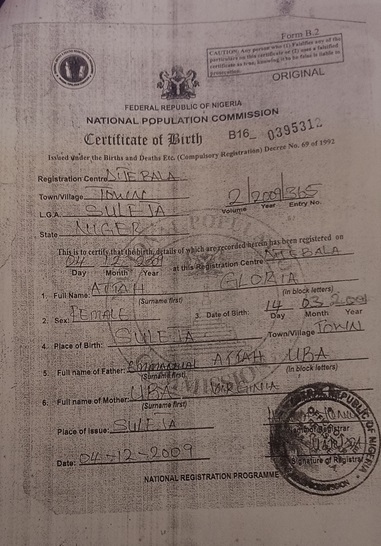 Form B.2
CAUTION: Any person who (1) Falsifies any of the
particulars on this certificate or (2) uses a falsified
certificate as true, knowing it to be false is liable to
prosecution
ORIGINAL
FEDERAL REPUBLIC OF NIGERIA
NATIONAL POPULATION COMMISSION
Certificate of Birth B16_ 0395312
Issued under the Births and Deaths Etc. (Compulsory Registration) Decree No. 69 of 1992
Registration Centre
Town/Village TOWN 2 2009 365
L.G.A. SULEJA Volume Year Entry No.
State NIGER
This is to certify that the birth, details of which are recorded herein has been registered on
04 12 at this Registration Centre
Day Month Year
1. Full Name: ATTAH GLORIA
(Surname first) (in block letters)
2. Sex: FEMALE 3. Date of Birth: 14 03
Day Month Year
4. Place of Birth: SULEJA Town/Village TOWN
5. Full name of Father: ATTAH UBA
(Surname first) (In block letters)
6. Full name of Mother: UBA VIRGINIA
(Surname first)
Place of Issue: SULEJA
Name of Registrar
Signature of Registrar
Date: 04-12-2009
NATIONAL REGISTRATION PROGRAMME